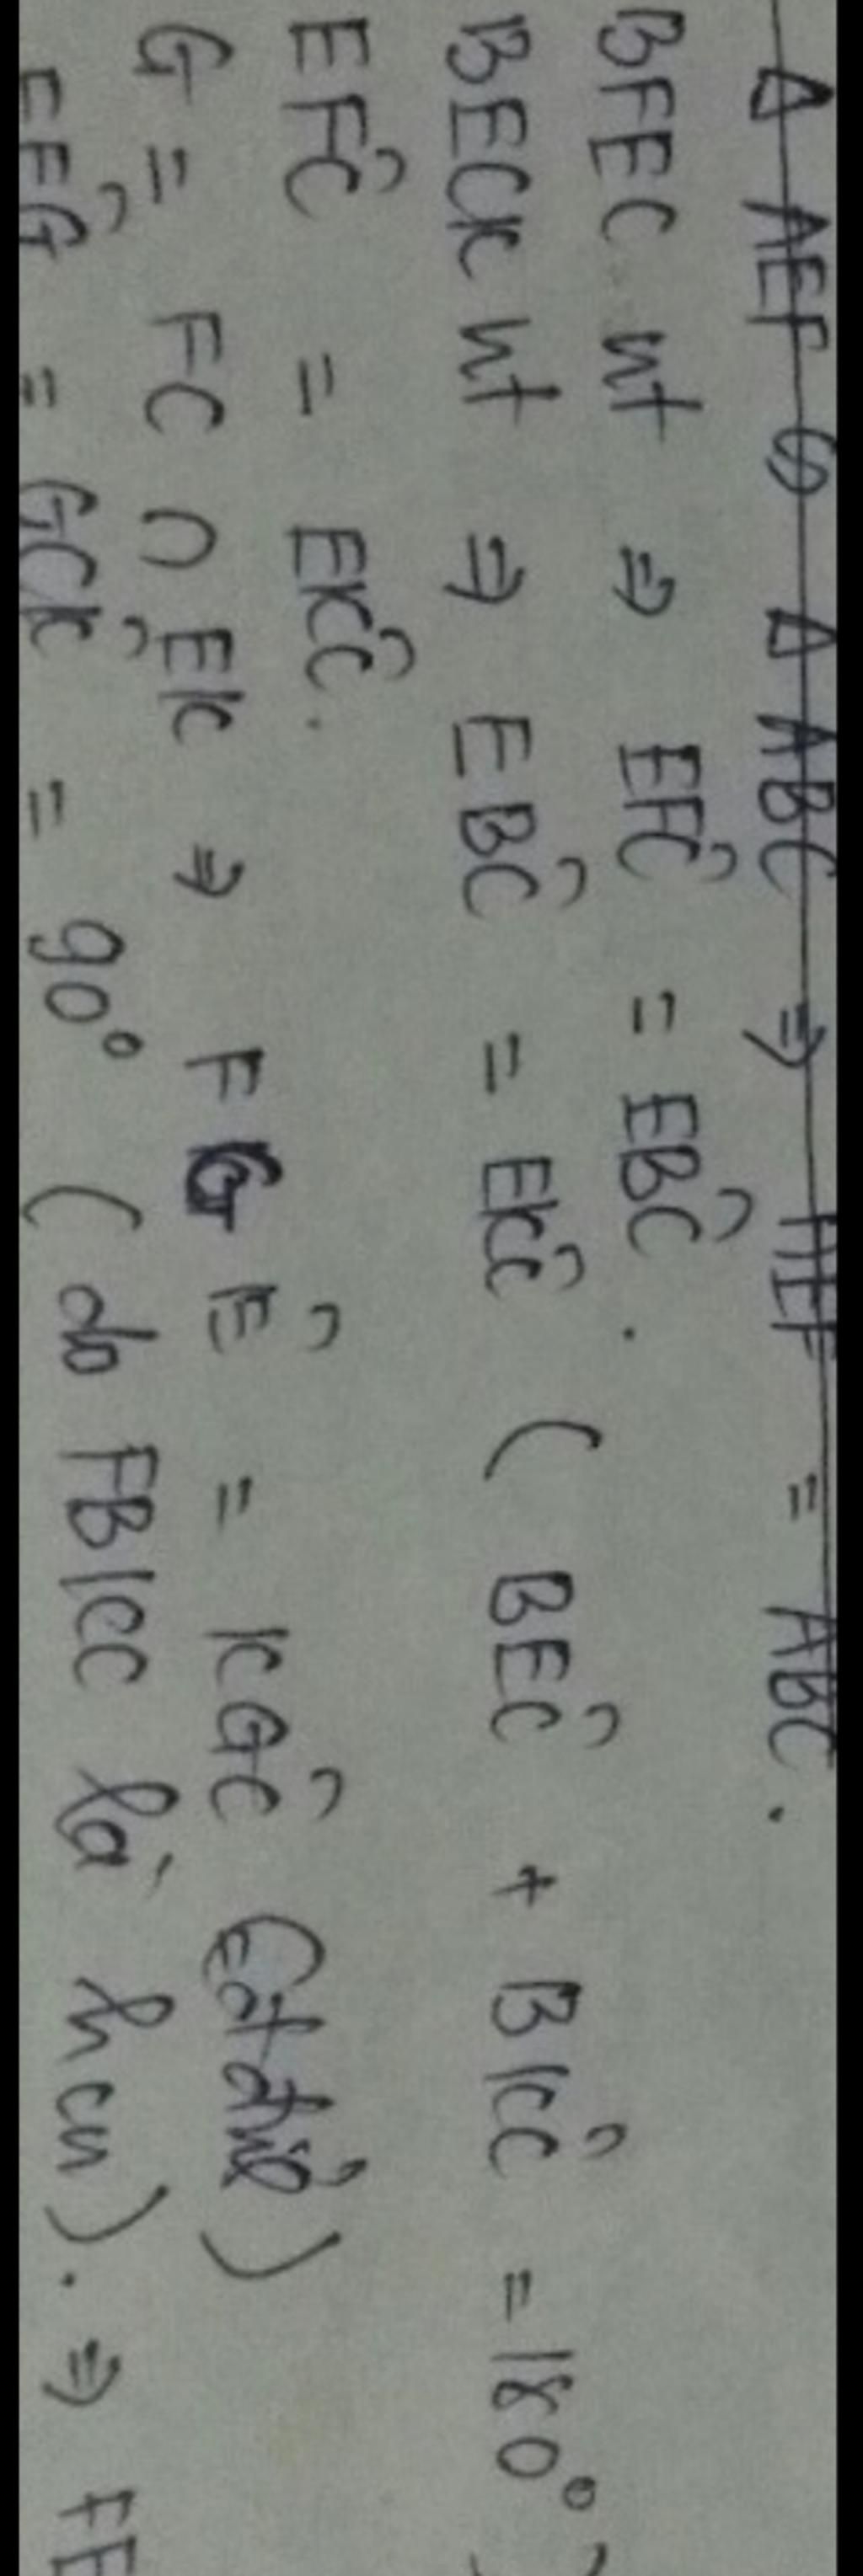 Δ AEF ∽ Δ ABC ⇒ AEF = ABC.
BFEC nt ⇒ EFĈ = EBĈ.
BECK nt ⇒ EBĈ = EKĈ ( BEĈ + BKĈ = 180°)
EFĈ = EKĈ.
G = FC ∩ EK ⇒ FGÊ = KGĈ (đđ)
FEĜ = GCK̂ = 90° ( do FBKC là hcn). ⇒ FE